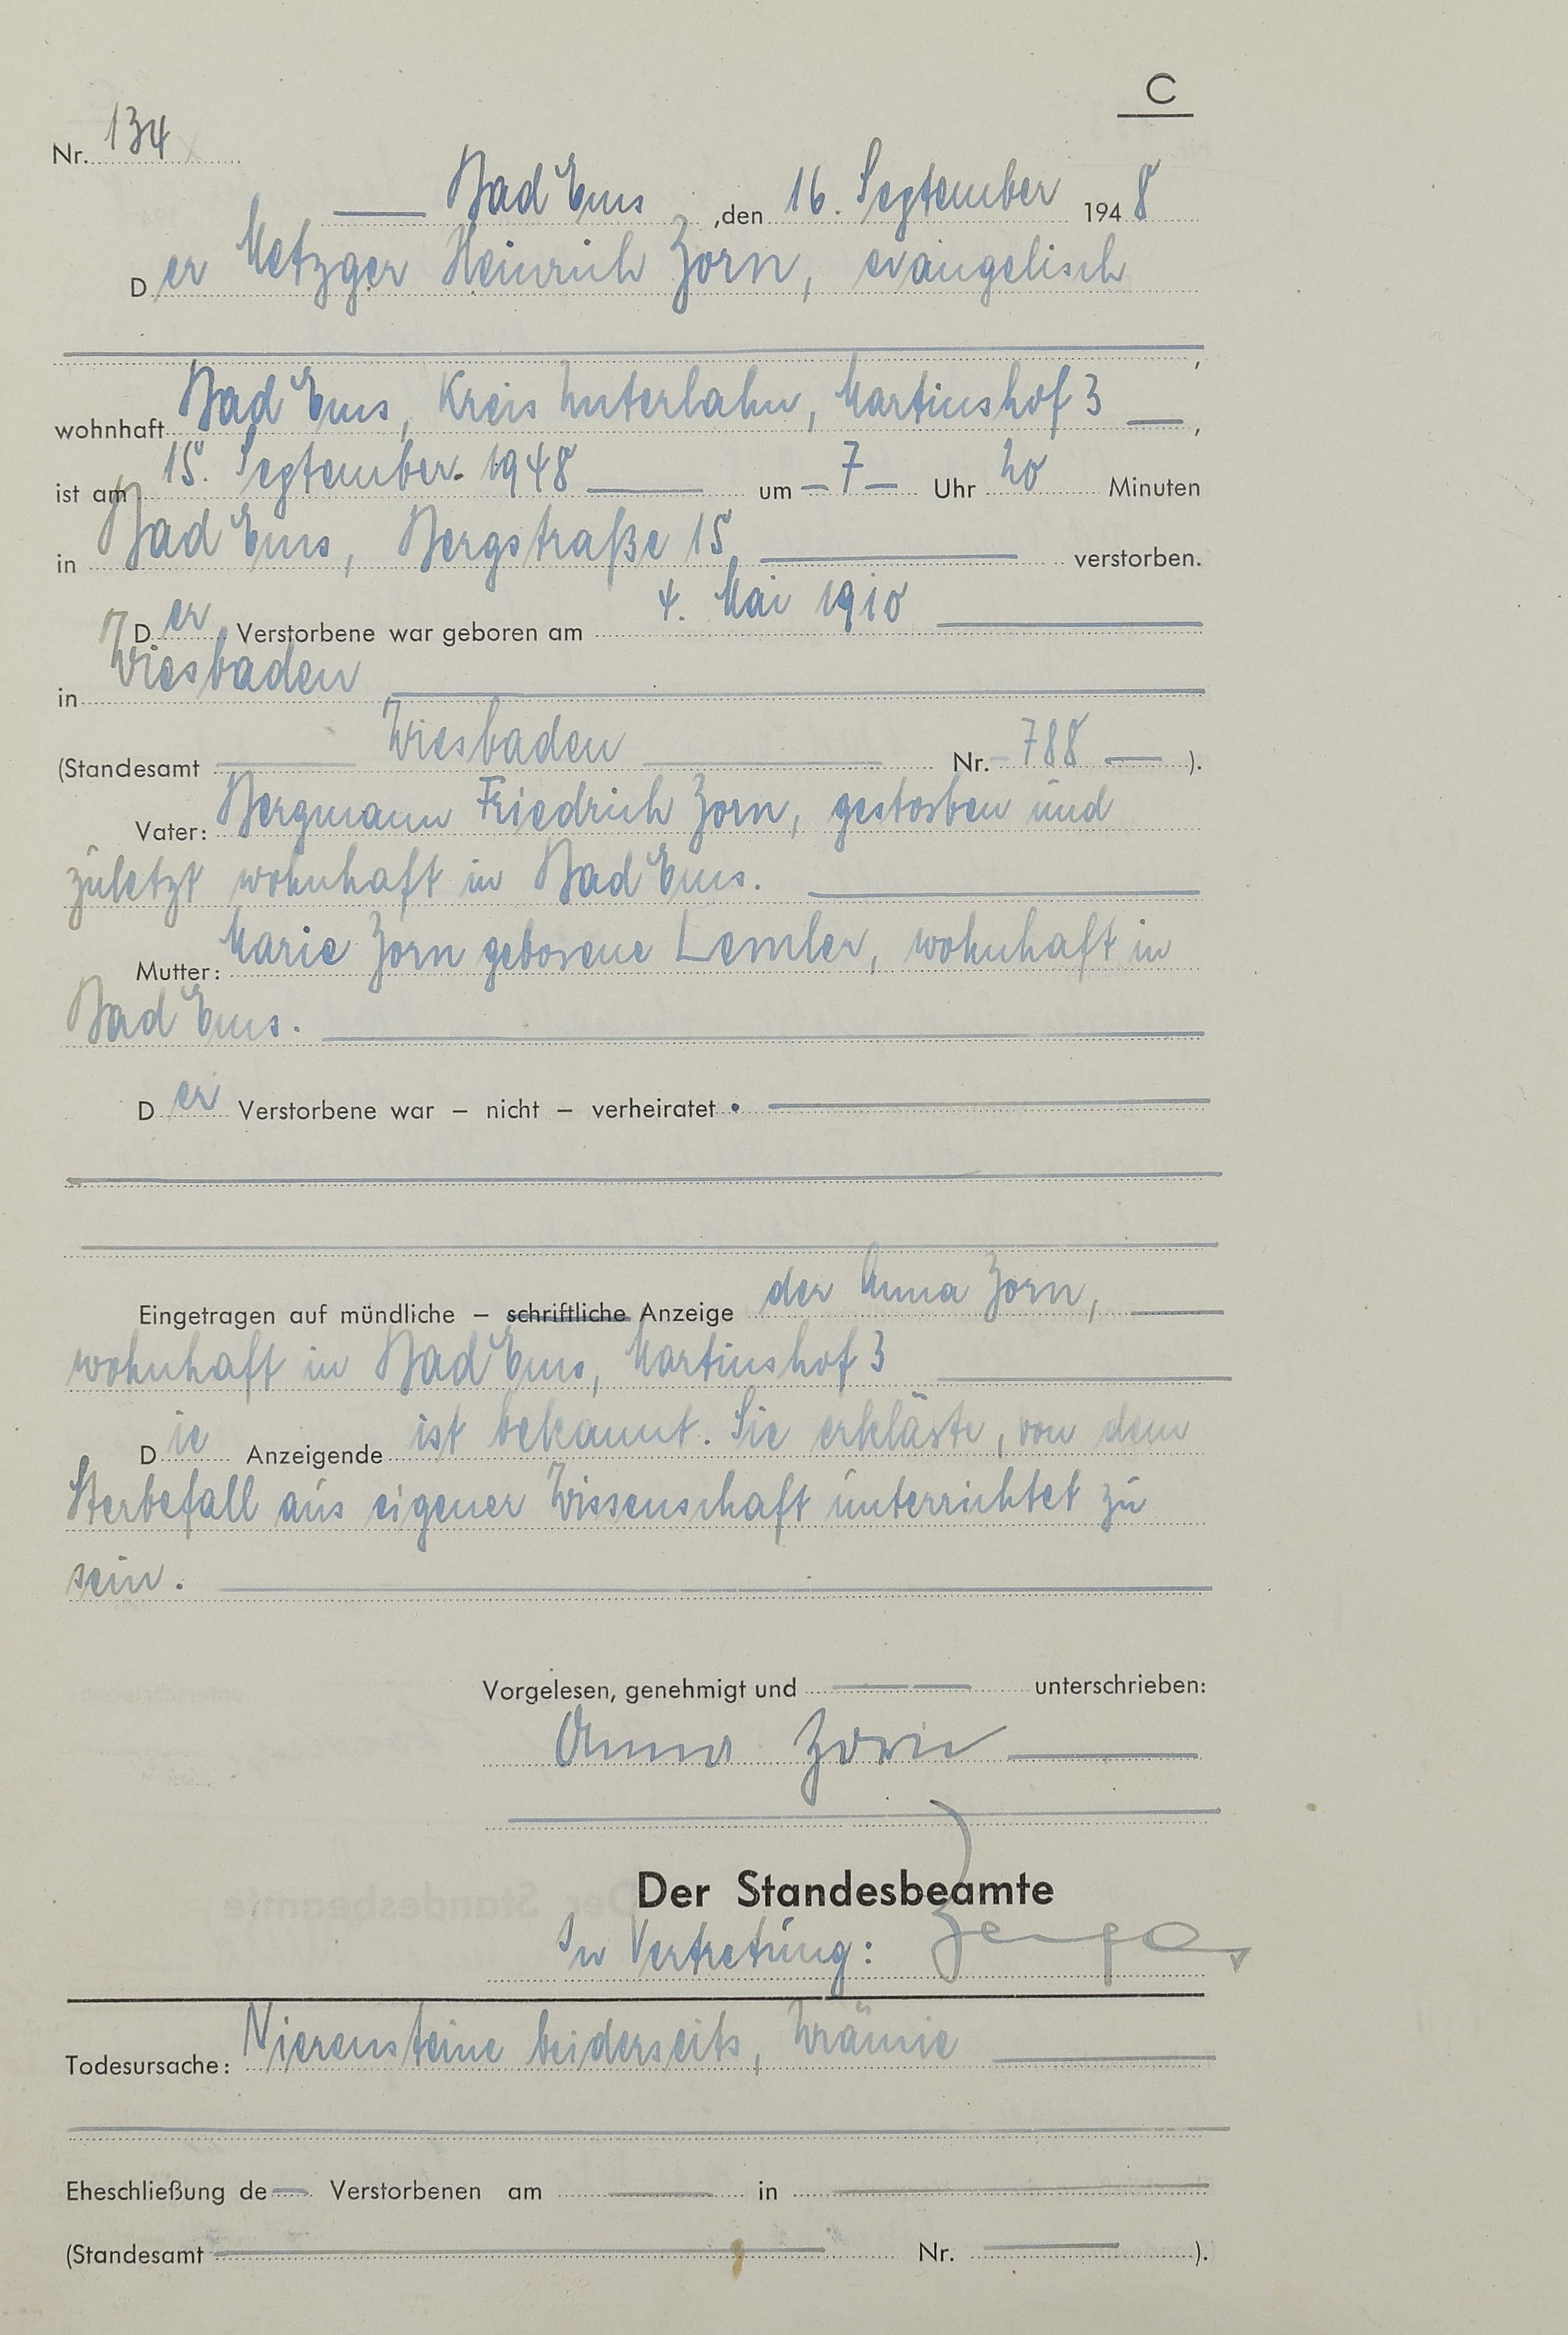 C
Nr. 134
Bad Ems, den 16. September 1948
Der Metzger Heinrich Zorn, evangelisch
,
wohnhaft Bad Ems, Kreis Unterlahn, Martinshof 3 ,
ist am 15. September 1948 um 7 Uhr 20 Minuten
in Bad Ems, Bergstraße 15 verstorben.
Der Verstorbene war geboren am 4. Mai 1910
in Wiesbaden
(Standesamt Wiesbaden Nr. 788 ).
Vater: Bergmann Friedrich Zorn, gestorben und
zuletzt wohnhaft in Bad Ems.
Mutter: Marie Zorn geborene Lemler, wohnhaft in
Bad Ems.
Der Verstorbene war – nicht – verheiratet.
Eingetragen auf mündliche – schriftliche Anzeige der Anna Zorn,
wohnhaft in Bad Ems, Martinshof 3
Die Anzeigende ist bekannt. Sie erklärte, von dem
Sterbefall aus eigener Wissenschaft unterrichtet zu
sein.
Vorgelesen, genehmigt und unterschrieben:
Anna Zorn
Der Standesbeamte
In Vertretung:
Todesursache: Nierensteine beiderseits, Urämie
Eheschließung de Verstorbenen am in
(Standesamt Nr. ).